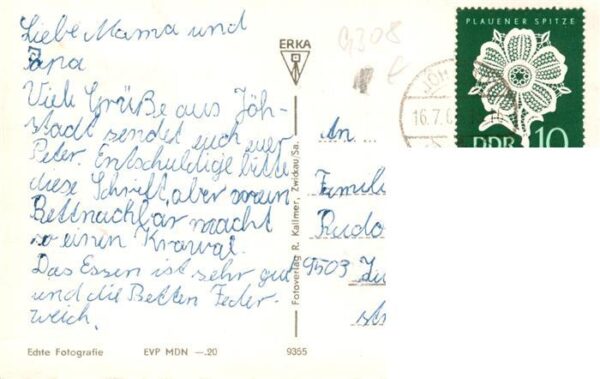 Liebe Mama und
Papa
Viele Grüße aus Jöh-
stadt sendet euch euer
Peter Entschuldige bitte
diese Schrift, aber mein
Bettnachbar macht
so einen Krawal.
Das Essen ist sehr gut
und die Betten Feder-
weich.
Echte Fotografie EVP MDN —.20 9355
ERKA
Fotoverlag R. Kallmer, Zwickau/Sa.
G308
PLAUENER SPITZE
DDR 10
JÖH
16.7.6
An
Famili
Rudo
9503